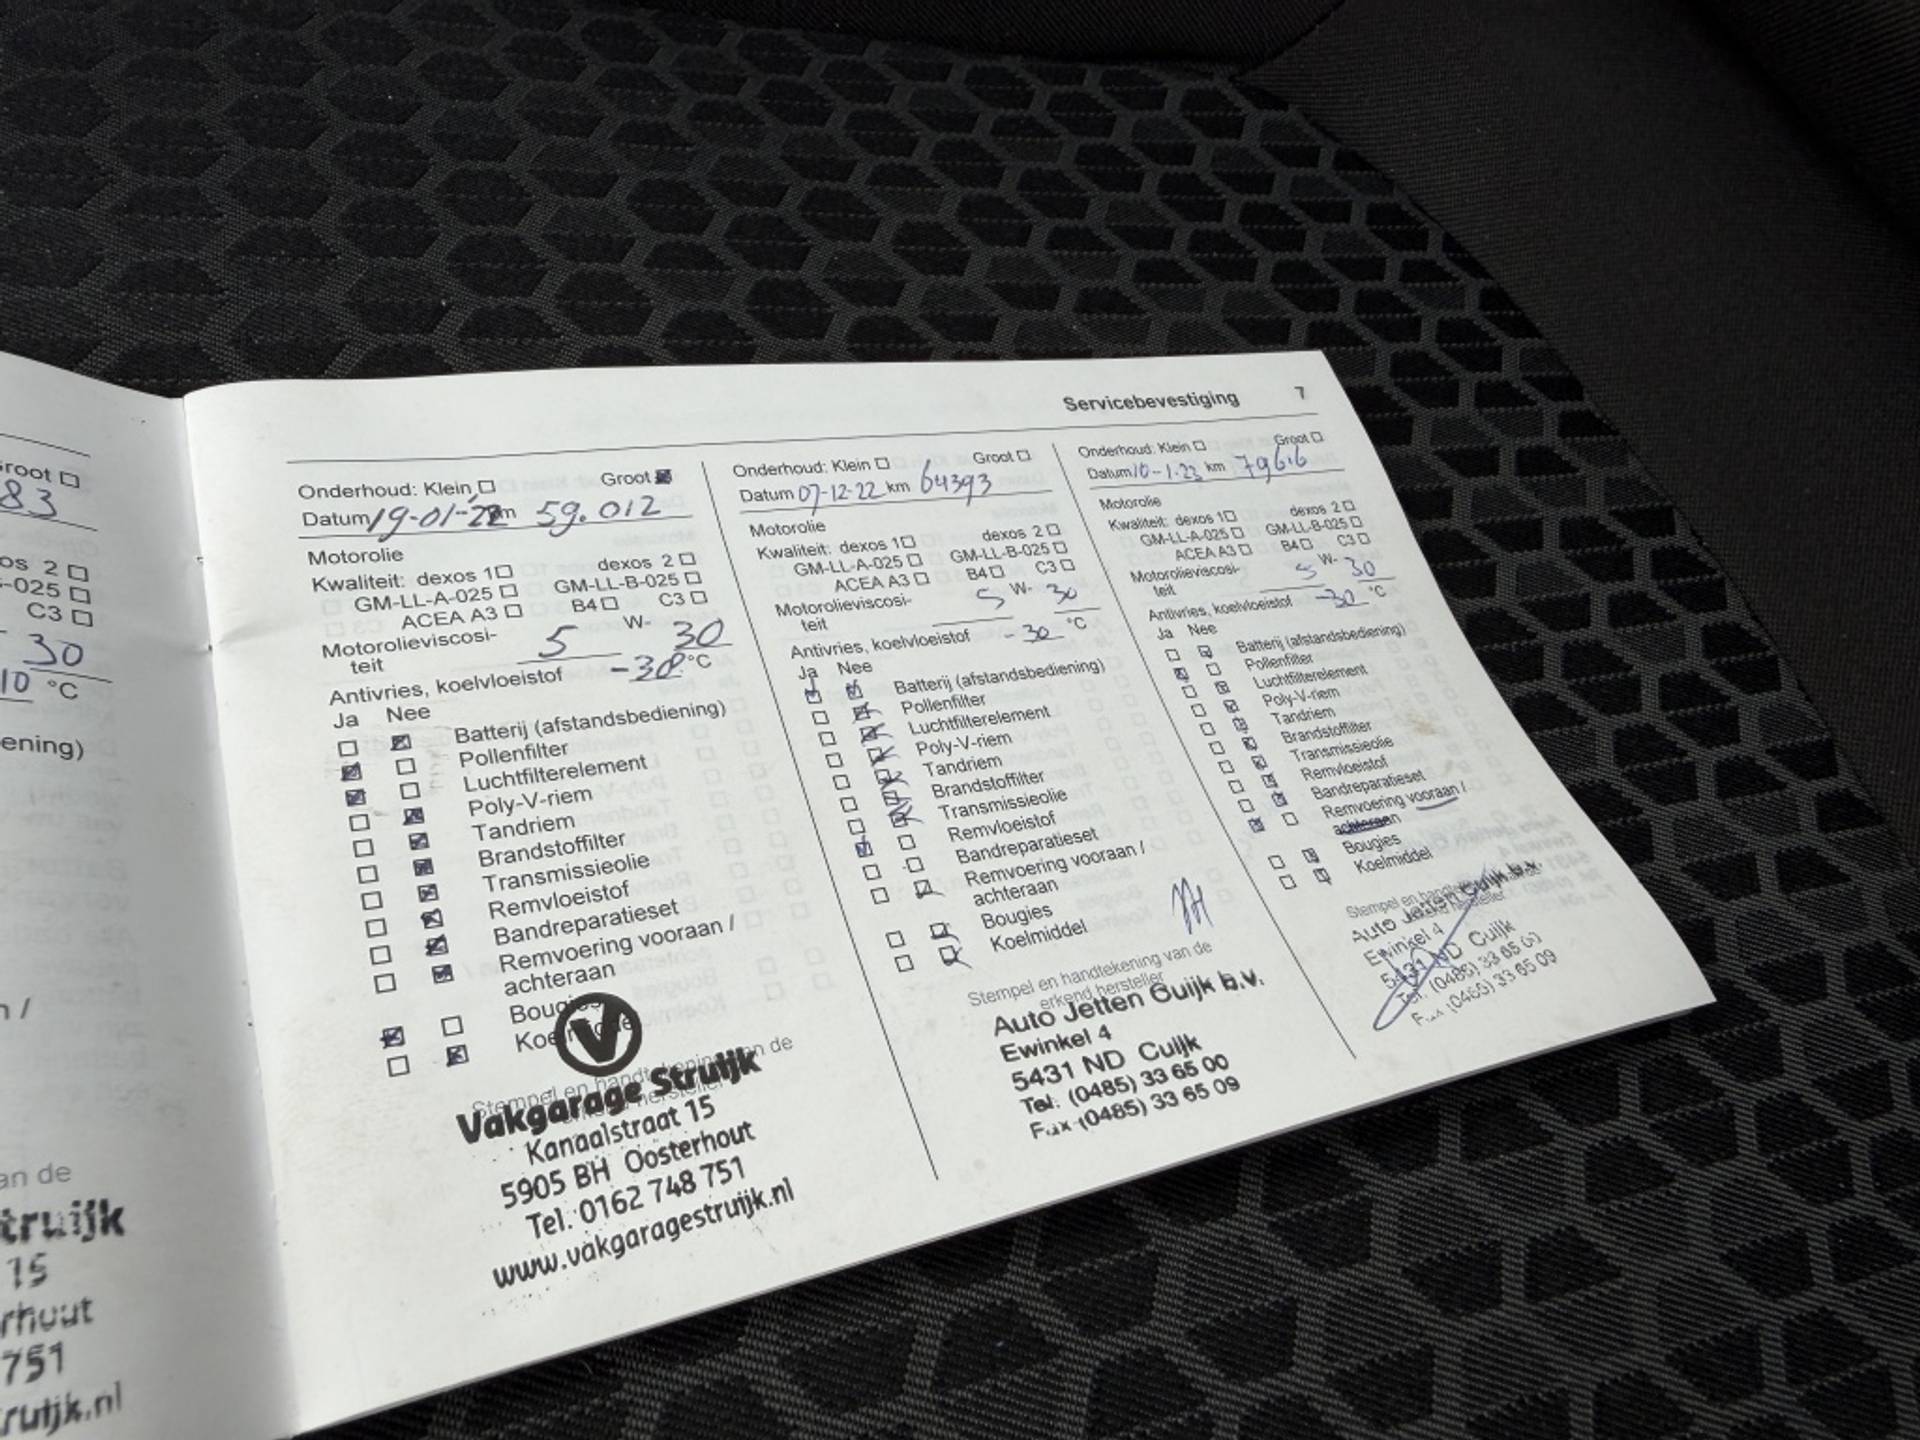 Servicebevestiging 7
Groot
83
dexos 2
-025
C3
30
10 °C
ening)
n /
an de
truijk
15
rhout
751
ruijk.nl
Onderhoud: Klein Groot
Datum 19-01-22 km 59.012
Motorolie
Kwaliteit: dexos 1 dexos 2
GM-LL-A-025 GM-LL-B-025
ACEA A3 B4 C3
Motorolieviscosi- 5 W- 30
teit
Antivries, koelvloeistof -30 °C
Ja Nee
Batterij (afstandsbediening)
Pollenfilter
Luchtfilterelement
Poly-V-riem
Tandriem
Brandstoffilter
Transmissieolie
Remvloeistof
Bandreparatieset
Remvoering vooraan /
achteraan
Bougies
Koelmiddel
Stempel en handtekening van de
V
Vakgarage Struijk
Kanaalstraat 15
5905 BH Oosterhout
Tel. 0162 748 751
www.vakgaragestruijk.nl
Onderhoud: Klein Groot
Datum 07-12-22 km 64393
Motorolie
Kwaliteit: dexos 1 dexos 2
GM-LL-A-025 GM-LL-B-025
ACEA A3 B4 C3
Motorolieviscosi- 5 W- 30
teit
Antivries, koelvloeistof -30 °C
Ja Nee
Batterij (afstandsbediening)
Pollenfilter
Luchtfilterelement
Poly-V-riem
Tandriem
Brandstoffilter
Transmissieolie
Remvloeistof
Bandreparatieset
Remvoering vooraan /
achteraan
Bougies
Koelmiddel
Stempel en handtekening van de
erkend hersteller
Auto Jetten Cuijk b.v.
Ewinkel 4
5431 ND Cuijk
Tel. (0485) 33 65 00
Fax (0485) 33 65 09
Onderhoud: Klein Groot
Datum 10-1-23 km 79616
Motorolie
Kwaliteit: dexos 1 dexos 2
GM-LL-A-025 GM-LL-B-025
ACEA A3 B4 C3
Motorolieviscosi- 5 W- 30
teit
Antivries, koelvloeistof -30 °C
Ja Nee
Batterij (afstandsbediening)
Pollenfilter
Luchtfilterelement
Poly-V-riem
Tandriem
Brandstoffilter
Transmissieolie
Remvloeistof
Bandreparatieset
Remvoering vooraan /
achteraan
Bougies
Koelmiddel
Stempel en
Auto Jetten Cuijk b.v.
Ewinkel 4
5431 ND Cuijk
Tel. (0485) 33 65
Fax (0485) 33 65 09